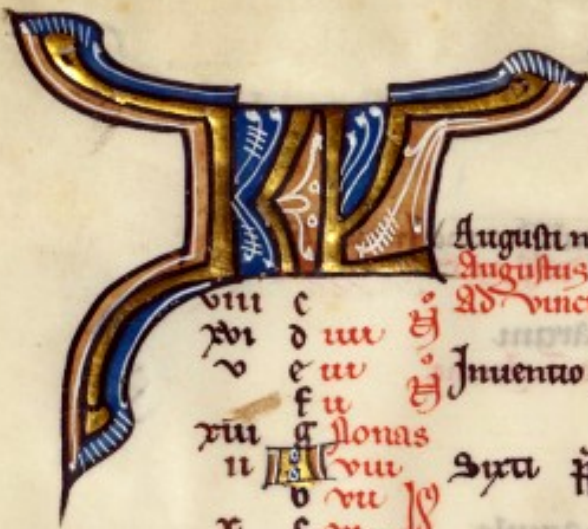 KL
Augusti n
Augustus
viii c Ad vinc
xvi d iiii
v e iii Inventio
f ii
xiii g Nonas
ii A viii Sixti
b vii